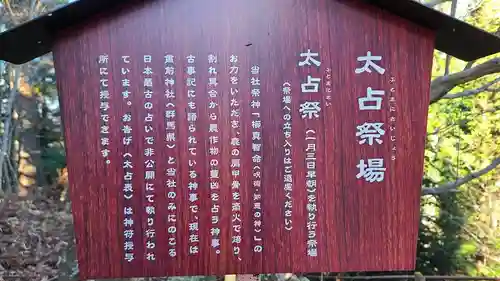 太占祭場
ふとまにさいじょう
太占祭(一月三日早朝)を執り行う祭場
ふとまにさい
(祭場への立ち入りはご遠慮ください)
当社祭神「櫛真智命(呪術・卜占の神)」の
お力をいただき、鹿の肩甲骨を斎火で焙り、
割れ具合から農作物の豊凶を占う神事。
古事記にも語られている神事で、現在は
貫前神社(群馬県)と当社のみにのこる
日本最古の占いで非公開にて執り行われ
ています。お告げ(太占表)は神符授与
所にて授与できます。